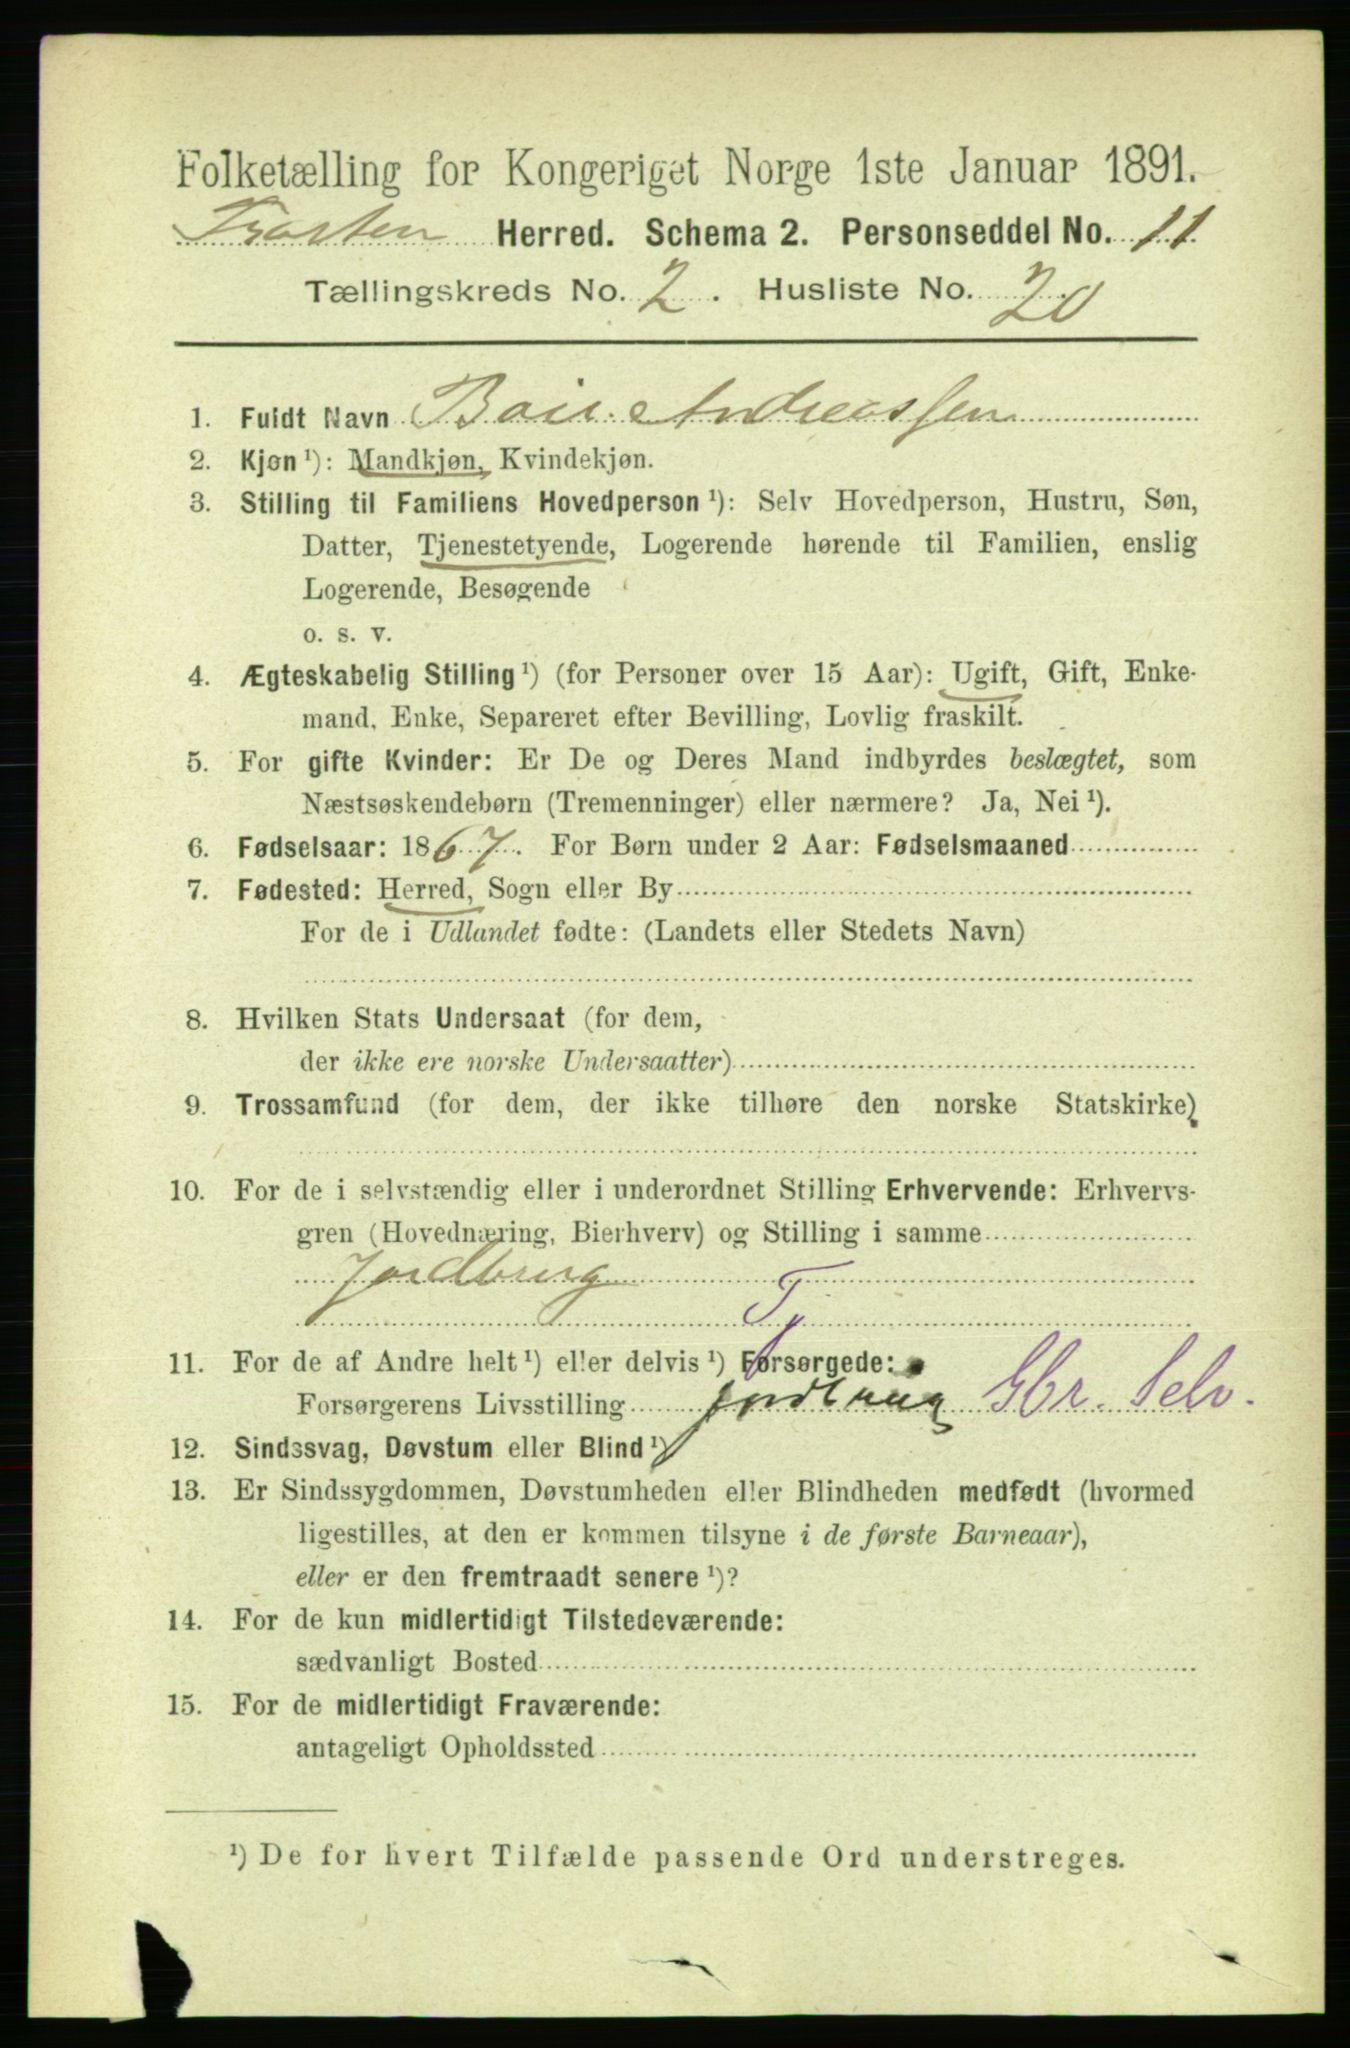 Folketælling for Kongeriget Norge 1ste Januar 1891.
Trosten Herred. Schema 2. Personseddel No. 11
Tællingskreds No. 2. Husliste No. 20
1. Fuldt Navn Andreassen
2. Kjøn ¹): Mandkjøn, Kvindekjøn.
3. Stilling til Familiens Hovedperson ¹): Selv Hovedperson, Hustru, Søn,
Datter, Tjenestetyende, Logerende hørende til Familien, enslig
Logerende, Besøgende
o. s. v.
4. Ægteskabelig Stilling ¹) (for Personer over 15 Aar): Ugift, Gift, Enke-
mand, Enke, Separeret efter Bevilling, Lovlig fraskilt.
5. For gifte Kvinder: Er De og Deres Mand indbyrdes beslægtet, som
Næstsøskendebørn (Tremenninger) eller nærmere? Ja, Nei ¹).
6. Fødselsaar: 1867. For Børn under 2 Aar: Fødselsmaaned
7. Fødested: Herred, Sogn eller By
For de i Udlandet fødte: (Landets eller Stedets Navn)
8. Hvilken Stats Undersaat (for dem,
der ikke ere norske Undersaatter)
9. Trossamfund (for dem, der ikke tilhøre den norske Statskirke)
10. For de i selvstændig eller i underordnet Stilling Erhvervende: Erhvervs-
gren (Hovednæring, Bierhverv) og Stilling i samme
Jordbrug
Tj
11. For de af Andre helt ¹) eller delvis ¹) Forsørgede:
Forsørgerens Livsstilling Jordbrug Gbr. Selv.
12. Sindssvag, Døvstum eller Blind ¹)
13. Er Sindssygdommen, Døvstumheden eller Blindheden medfødt (hvormed
ligestilles, at den er kommen tilsyne i de første Barneaar),
eller er den fremtraadt senere ¹)?
14. For de kun midlertidigt Tilstedeværende:
sædvanligt Bosted
15. For de midlertidigt Fraværende:
antageligt Opholdssted
¹) De for hvert Tilfælde passende Ord understreges.